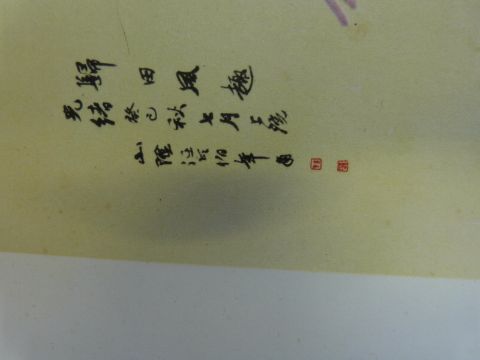 歸田風趣
光緒癸巳秋七月上浣
山陰任頤伯年